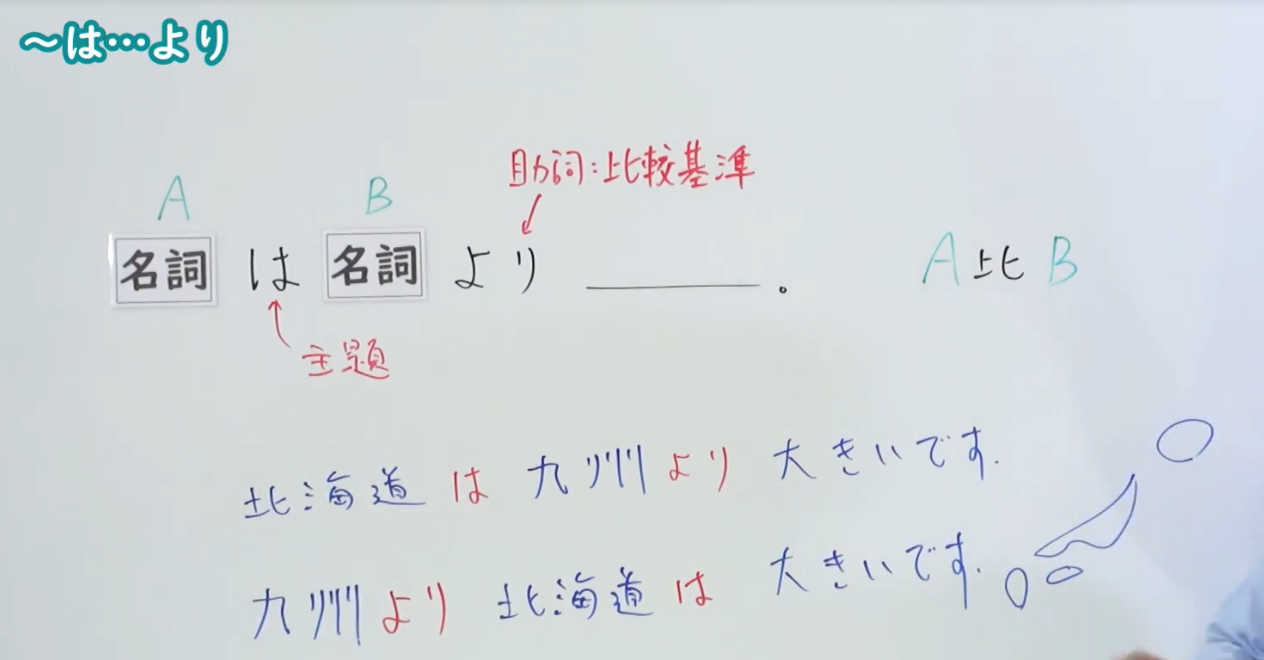 ～は…より
助詞:比較基準
A B
名詞 は 名詞 より ＿＿＿＿。 A比B
主題
北海道 は 九州 より 大きいです.
九州 より 北海道 は 大きいです.